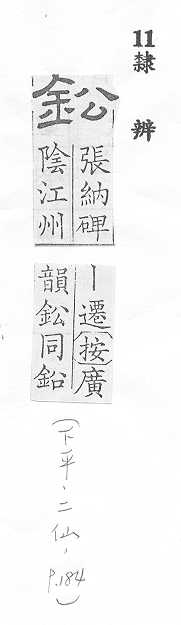 11隸辨
鈆
張納碑
陰江州
｜遷(按)廣
韻鈆同鉛
(下平.二仙,P.184)